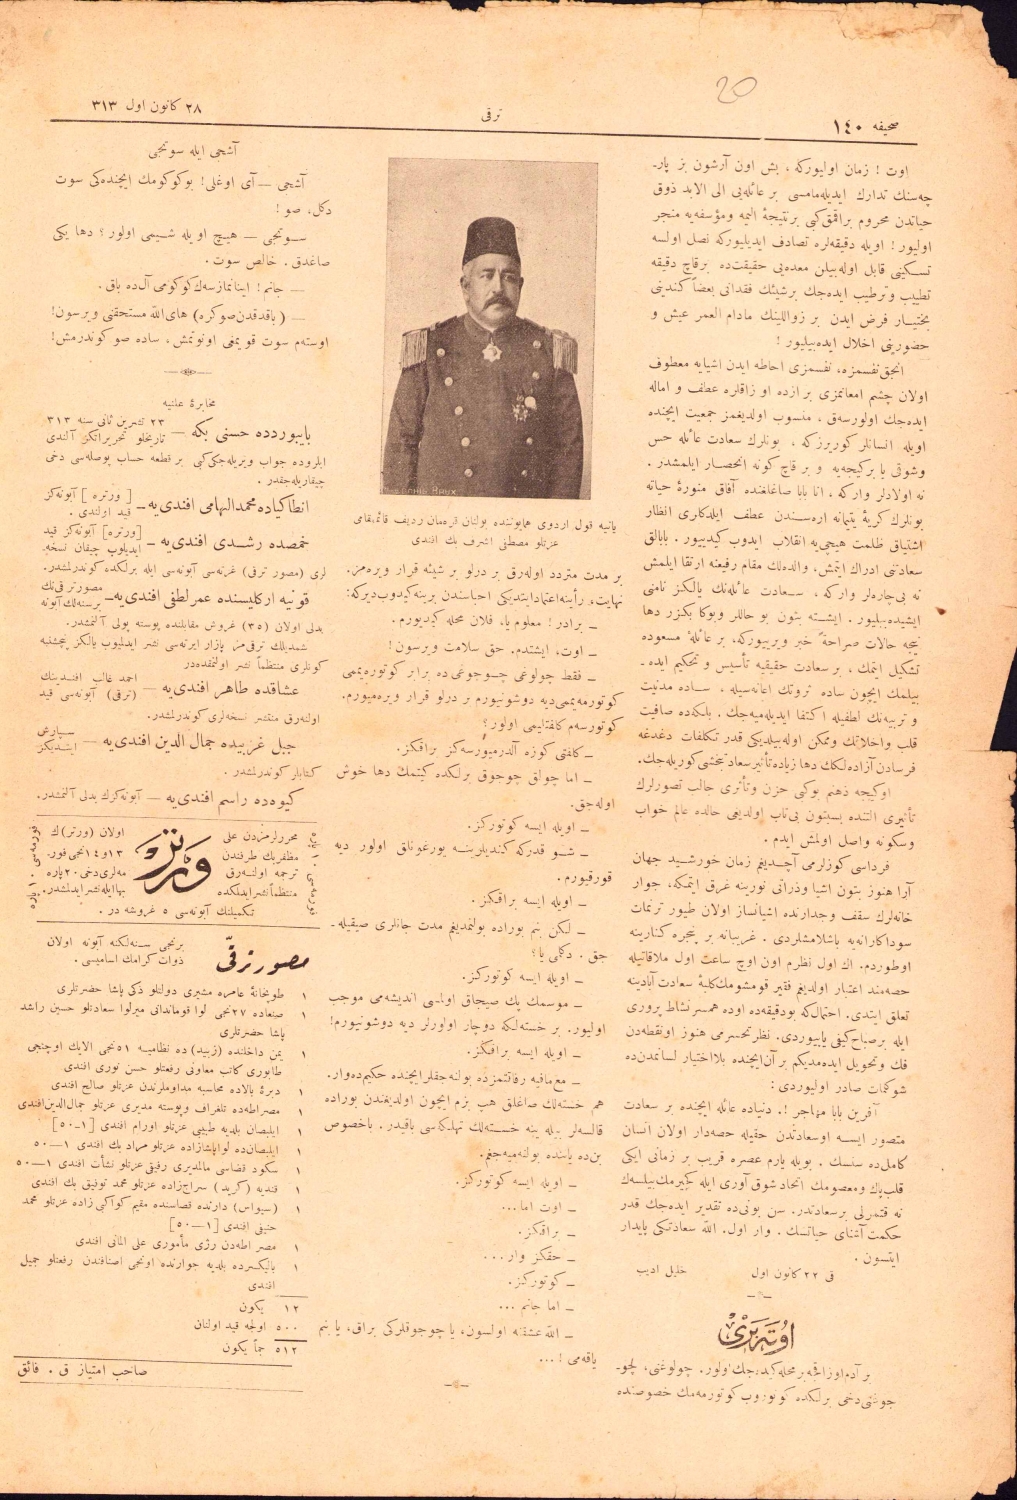 20
صحیفه ١٤٠
ترقی
٢٨ كانون اول ٣١٣
اوت ! زمان اولیوركه ، بش اون آرشون بز پار۔
چه‌سنك تدارك ایدیله‌مامسی بر عائله‌یی الی الابد ذوق
حیاتدن محروم براقمق كبی بر نتیجهٔ الیمه ومؤسفه‌یه منجر
اولیور ! اویله دقیقه‌لره تصادف ایدیلیوركه نصل اولسه
تسكینی قابل اوله‌بیلن معده‌یی حقیقت‌ده برقاچ دقیقه
تطییب وترطیب ایده‌جك برشیئك فقدانی بعضاً كندینی
بختیار فرض ایدن بر زواللینك مادام العمر عیش و
حضورینی اخلال ایده‌بیلیور !
انجق نفسمزه، نفسمزی احاطه ایدن اشیایه معطوف
اولان چشم امعانمزی بر ازده او زاقلره عطف و اماله
ایده‌جك اولورسه‌ق ، منسوب اولدیغمز جمعیت ایچنده
اویله انسانلر كوریرزكه ، بونلرك سعادت عائله حس
وشوقی یا بركیجه‌یه و بر قاچ كونه انحصار ایلمشدر .
نه اولادلر واركه ، انا بابا صاغلغنده آفاق منورهٔ حیاته
بونلرك كریهٔ یتیمانه اره‌سندن عطف ایلدكلری انظار
اشتیاق ظلمت هیچی‌یه انقلاب ایدوب كیدییور . بابالق
سعادتنی ادراك ایتمش، والده‌لك مقام رفیعنه ارتقا ایلمش
نه بی‌چاره‌لر واركه ، سعادت عائله‌نك یالكز نامنی
ایشیده‌بیلیور . ایشته بتون بو حاللر وبوكا بكزر دها
نیجه حالات صراحةً خبر ویرییوركه، بر عائلهٔ مسعوده
تشكیل ایتمك ، بر سعادت حقیقیه تأسیس و تحكیم ایده ۔
بیلمك ایچون ساده ثروتك اعانه‌سیله ، ساده مدنیت
و تربیه‌نك لطفیله اكتفا ایدیله‌میه‌جك . بلكه‌ده صافیت
قلب واخلاقك وممكن اوله‌بیلدیكی قدر تكلفات دغدغه
فرسادن آزاده‌لكك دها زیاده تأثیر سعادتبخشی كوریله‌جك.
اوكیجه ذهنم بوكبی حزن وتأثری جالب تصورلرك
تأثیری التنده بسبتون بی‌تاب اولدیغی حالده عالم خواب
وسكونه واصل اولمش ایدم .
فرداسی كوزلرمی آچدیغم زمان خورشید جهان
آرا هنوز بتون اشیا وذراتی نورینه غرق ایتمكه، جوار
خانه‌لرك سقف وجدارنده اشیانساز اولان طیور ترنمات
سوداكارانه‌یه باشلامشلردی . غریبانه بر پنجره كنارینه
اوطوردم. اك اول نظرم اون اوچ ساعت اول ملاقاتیله
حصه‌مند اعتبار اولدیغم فقیر قومشومك كلبهٔ سعادت آبادینه
تعلق ایتدی. احتمال‌كه بودقیقه‌ده اوده همسر نشاط پروری
ایله برصباح كیفی یاپیوردی. نظر تحسرمی هنوز اونقطه‌دن
فك وتحویل ایده‌مدیكم بر آن ایچنده بلااختیار لسانمدن‌ده
شوكلمات صادر اولیوردی :
آفرین بابا مهاجر !. دنیاده عائله ایچنده بر سعادت
متصور ایسه اوسعادتدن حقیله حصه‌دار اولان انسان
كامل‌ده سنسك . بویله یارم عصره قریب بر زمانی ایكی
قلب پاك ومعصومك اتحاد شوق آوری ایله كچیرمك بیلسه‌ك
نه قتمرلی برسعادتدر. سن بونی‌ده تقدیر ایده‌جك قدر
حكمت آشنای حیاتسك . وار اول. الله سعادتكی پایدار
ایتسون .
فی ٢٢ كانون اول خلیل ادیب
اوته بری
بر آدم اوزاقجه بر محله كیده‌جك اولور. چولوغنی، چو۔
جوغنی دخی برلكده كوتوروب كوتورمه‌مك خصوصنده
یانیه قول اردوی همایوننده بولنان قره‌مان ردیف قائمقامی
عزتلو مصطفی اشرف بك افندی
بر مدت متردد اوله‌رق بر درلو بر شیئه قرار ویره‌مز.
نهایت، رأینه اعتماد ایتدیكی احباسندن برینه كیدوب دیركه:
ـ برادر ! معلوم یا، فلان محله كیدیورم.
ـ اوت، ایشتدم. حق سلامت ویرسون !
ـ فقط چولوغی چوجوغی ده برابر كوتوره‌یممی
كوتورمه‌یممی‌دیه دوشونیورم بر درلو قرار ویره‌میورم.
كوتورسه‌م كلفتلیمی اولور ؟
ـ كلفتی كوزه آلدرمیورسه‌كز براقكز.
ـ اما چولق چوجوق برلكده كیتمك دها خوش
اوله‌جق.
ـ اویله ایسه كوتوركز.
ـ شو قدركه كندیلرینه یورغونلق اولور دیه
قورقیورم.
ـ اویله ایسه براقكز.
ـ لكن بنم بوراده بولنمدیغم مدت جانلری صیقیله۔
جق . دكلمی یا؟
ـ اویله ایسه كوتوركز.
ـ موسمك پك صیجاق اولمسی اندیشه‌می موجب
اولیور. بر خسته‌لكه دوچار اولورلر دیه دوشونیورم!
ـ اویله ایسه براقكز.
ـ مع‌مافیه رفاقتمزده بولنه‌جقلر ایچنده حكیم‌ده‌وار.
هم خسته‌لك صاغلق هپ بزم ایچون اولدیغندن بوراده
قالسه‌لر بیله ینه خسته‌لك تهلكه‌سی باقیدر. باخصوص
بن‌ده یاننده بولنه‌میه‌جغم.
ـ اویله ایسه كوتوركز.
ـ اوت اما...
ـ براقكز.
ـ حقكز وار...
ـ كوتوركز.
ـ اما جانم ...
ـ الله عشقنه اولسون، یا چوجوقلركی براق، یا بنم
یاقه‌می ! ...
آشجی ایله سوتجی
آشجی — آی اوغلی ! بوكوكومك ایچنده‌كی سوت
دكل، صو !
سوتجی — هیچ اویله شیمی اولور ؟ دها یكی
صاغدق . خالص سوت .
— جانم ! اینانمازسه‌ك كوكومی آل‌ده باق .
— ( باقدقدن صوكره ) های الله مستحقنی ویرسون!
اوسته‌م سوت قویمغی اونوتمش، ساده صو كوندرمش!
مخابرهٔ علنیه
بایبوردده حسنی بكه — ٢٣ تشرین ثانی سنه ٣١٣
تاریخلو تحریراتكز آلندی
ایلروده جواب ویریله‌جكی كبی بر قطعه حساب پوصله‌سی دخی
چیقاریله‌جقدر .
انطاكیاده محمدالهامی افندی‌یه ـ [ورتره] آبونه‌كز
قید اولندی .
خمصده رشدی افندی‌یه ـ [ورتره] آبونه‌كز قید
ایدیلوب چیقان نسخه‌
لری (مصور ترقی) غزته‌سی آبونه‌سی ایله برلكده كوندرلمشدر.
قونیه اركلیسنده عمر لطفی افندی‌یه ـ مصور ترقی‌نك
برسنه‌لك آبونه
بدلی اولان (٣٥) غروش مقابلنده پوسته پولی آلنمشدر.
شمدیلك ترقی‌مز پازار ایرته‌سی نشر ایدلیوب یالكز پنجشنبه
كونلری منتظماً نشر اولنمقده‌در
عشاقده طاهر افندی‌یه — احمد غالب افندینك
(ترقی) آبونه‌سی قید
اولنه‌رق منتشر نسخه‌لری كوندرلمشدر.
جبل غربیده جمال الدین افندی‌یه — سپارش
ایتدیكز
كتابلر كوندرلمشدر .
كیوه‌ده راسم افندی‌یه — آبونه‌كزك بدلی آلنمشدر.
محررلرمزدن علی
مظفربك طرفندن
ترجمه اولنه‌رق
منتظماً نشر ایدلكده
ورتر
اولان (ورتر)ك
١٣و١٤نجی فور
مه‌لری دخی ٢٠ پاره
بها ایله نشر ایدلمشدر.
تكمیلنك آبونه‌سی ٥ غروشه در .
فورمه‌سی ١٠ پاره
فورمه‌سی ١٠ پاره
مصور ترقی
برنجی سنه‌لكنه آبونه اولان
ذوات كرامك اسامیسی .
١ طوپخانهٔ عامره مشیری دولتلو ذكی پاشا حضرتلری
١ صنعاده ٢٧نجی لوا قوماندانی میرلوا سعادتلو حسین راشد
پاشا حضرتلری
١ یمن داخلنده (زبید) ده نظامیه ٥١نجی الایك اوچنجی
طابوری كاتب معاونی رفعتلو حسن نوری افندی
١ دبرهٔ بالاده محاسبه مداوملرندن عزتلو صالح افندی
١ مصراطه‌ده تلغراف وپوسته مدیری عزتلو جمال‌الدین‌افندی
١ ایلبصان بلدیه طبیبی عزتلو اورام افندی [١ـ٥٠]
١ ایلبصان‌ده لواپاشازاده عزتلو مراد بك افندی ١—٥٠
١ سكود قضاسی مالمدیری رفیق عزتلو نشأت افندی ١—٥٠
١ قندیه (كرید) سراج‌زاده عزتلو محمد توفیق بك افندی
١ (سیواس) دارنده قضاسنده مقیم كواكبی زاده عزتلو محمد
حنیفی افندی [١—٥٠]
١ مصراطه‌دن رژی مأموری علی المانی افندی
١ بالیكسرده بلدیه جوارنده اونجی اصنافندن رفعتلو جمیل
افندی
١٢ یكون
٥٠٠ اولجه قید اولنان
٥١٢ جمعاً یكون
صاحب امتیاز ق . فائق